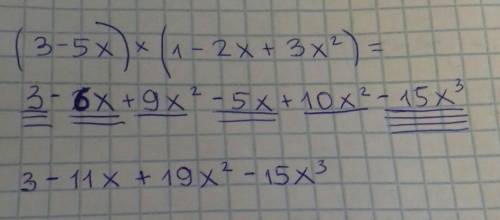 (3-5x)×(1-2x+3x²)=
3-6x+9x²-5x+10x²-15x³
3-11x+19x²-15x³